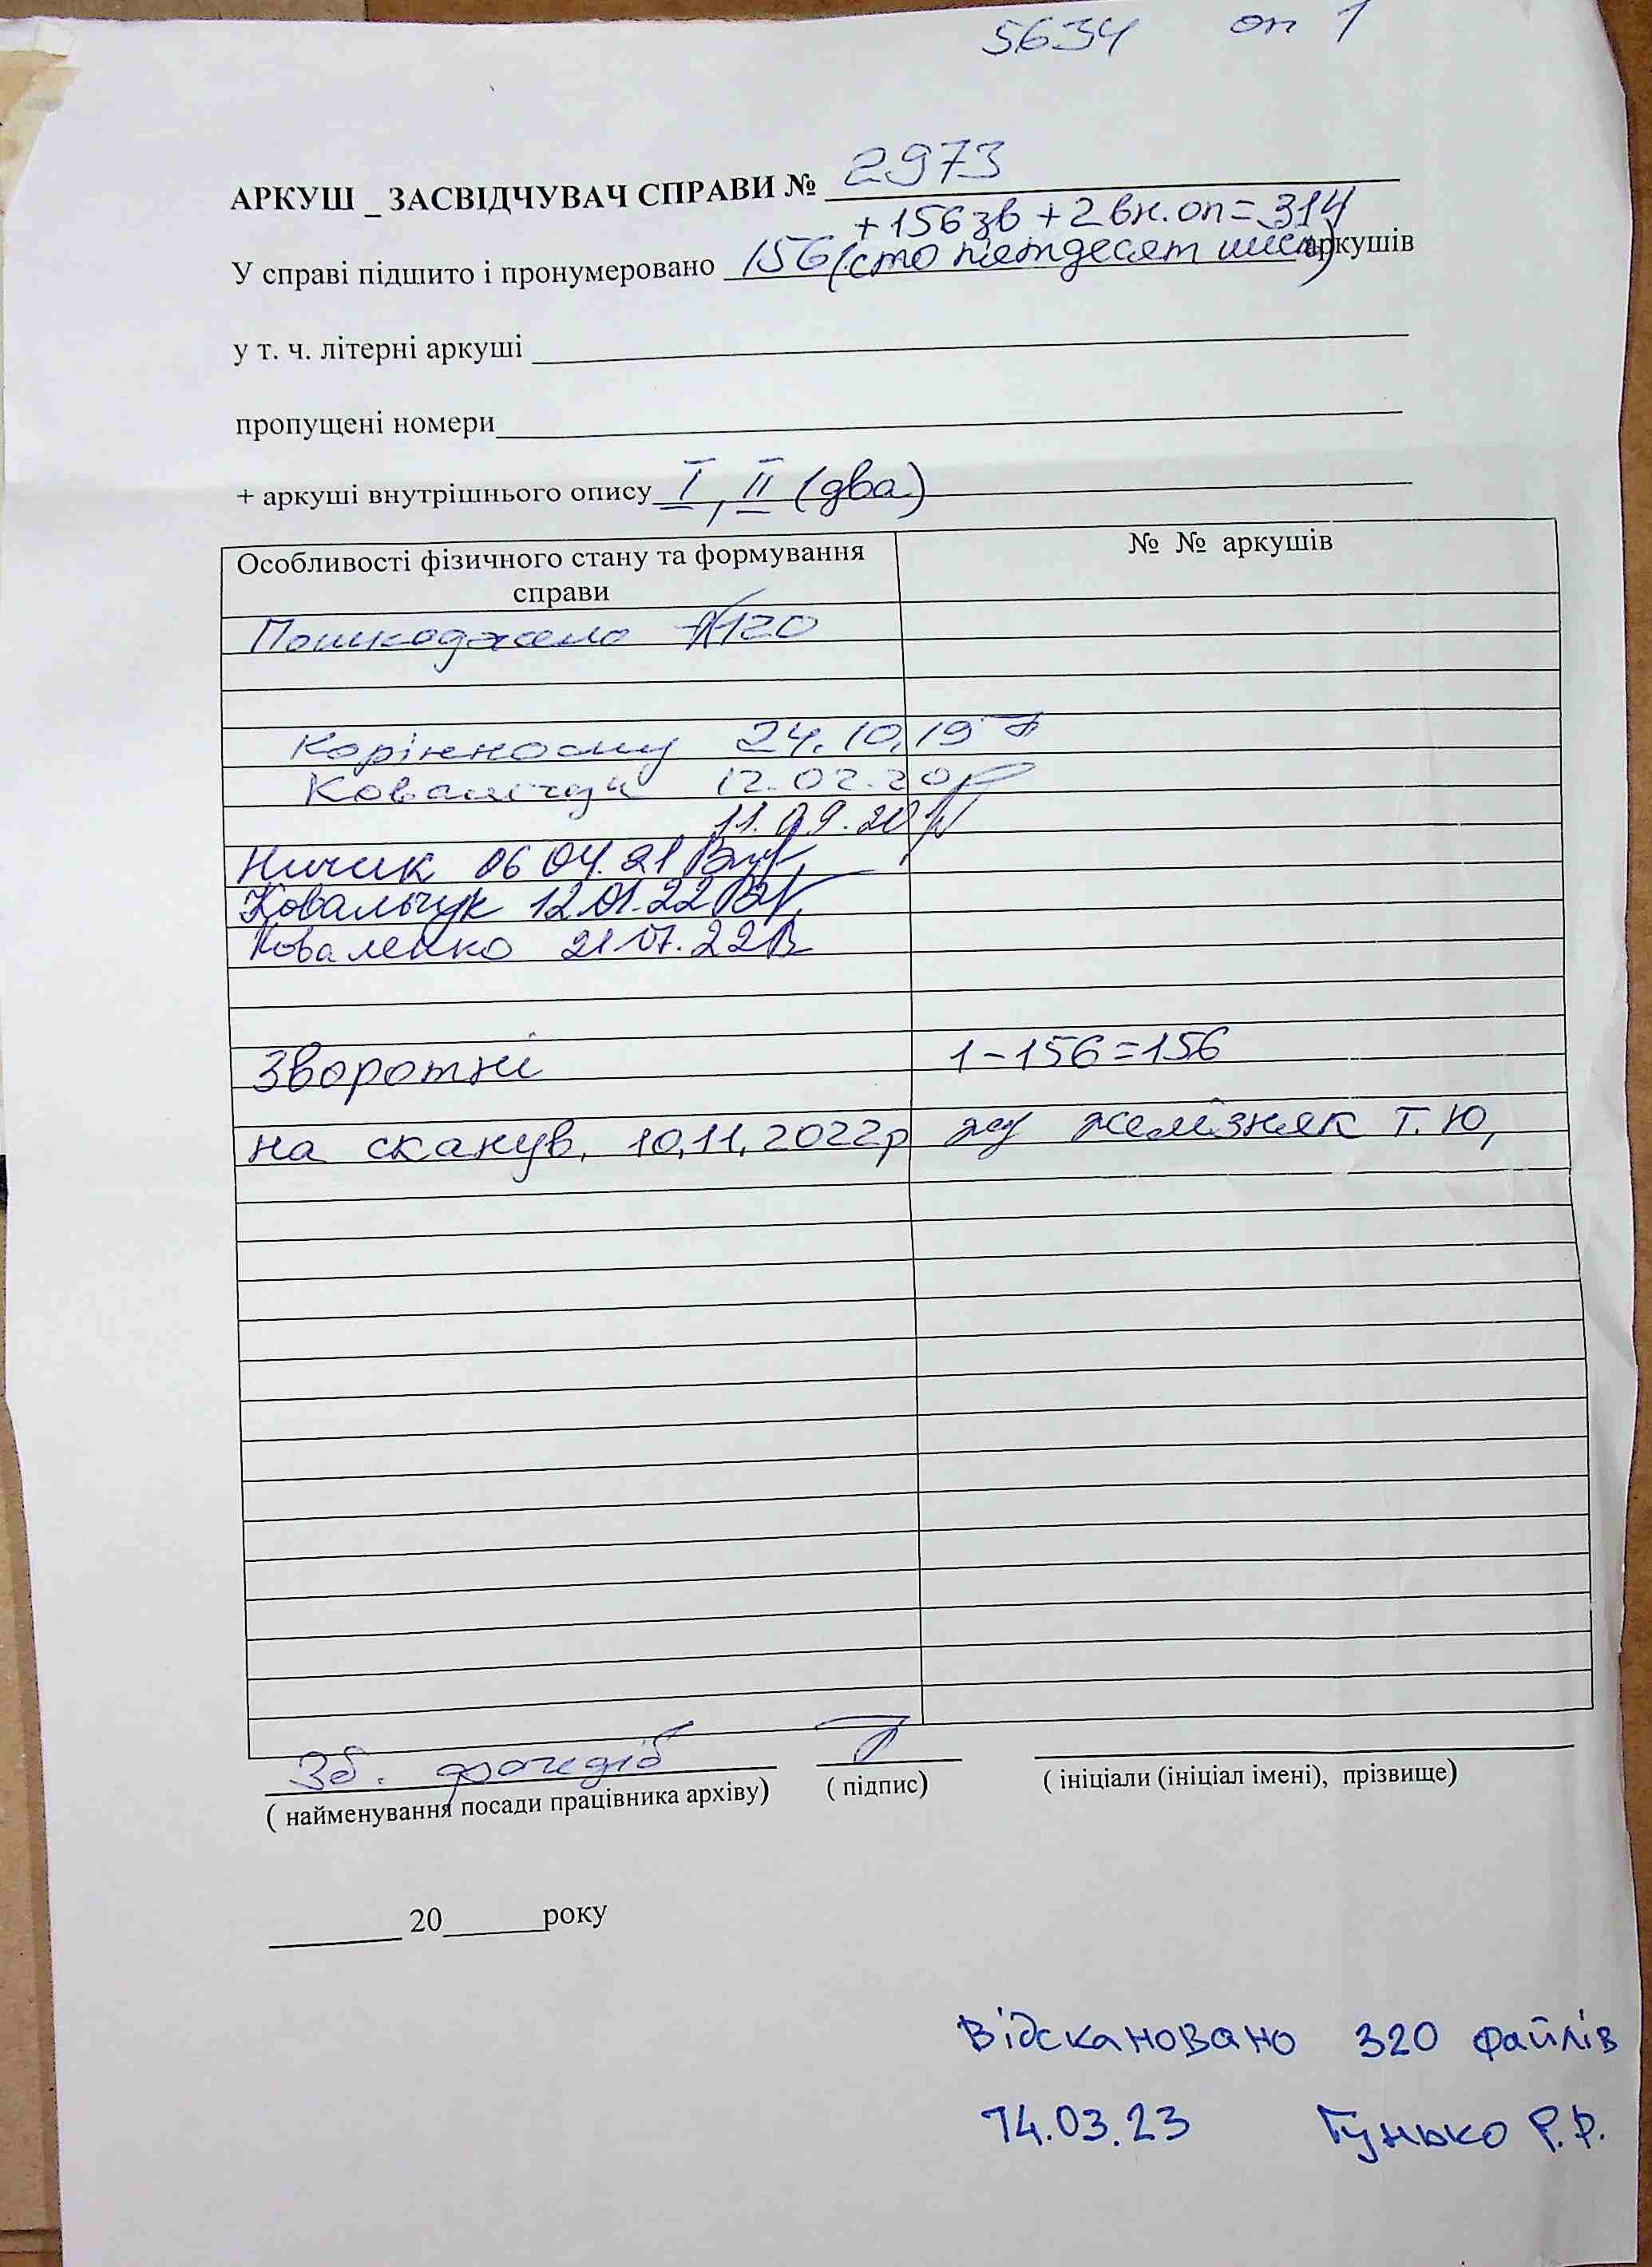 5634 оп 1
АРКУШ _ ЗАСВІДЧУВАЧ СПРАВИ № 2973
+156 зв + 2 вн. оп = 314
У справі підшито і пронумеровано 156 (сто пятдесят шість) аркушів
у т. ч. літерні аркуші
пропущені номери
+ аркуші внутрішнього опису I, II (два)
Особливості фізичного стану та формування справи
№ № аркушів
Пошкоджено 120
Корінному 24.10.19
12.02.20
11.09.20
Ничик 06 04.21
Ковальчук 12.01.22
Коваленко 21.07.22
Зворотні 1-156=156
на сканув. 10,11,2022р Железняк Т.Ю,
Зб.
( найменування посади працівника архіву) ( підпис) ( ініціали (ініціал імені), прізвище)
20 року
Відскановано 320 файлів
14.03.23 Гунько Р.Р.